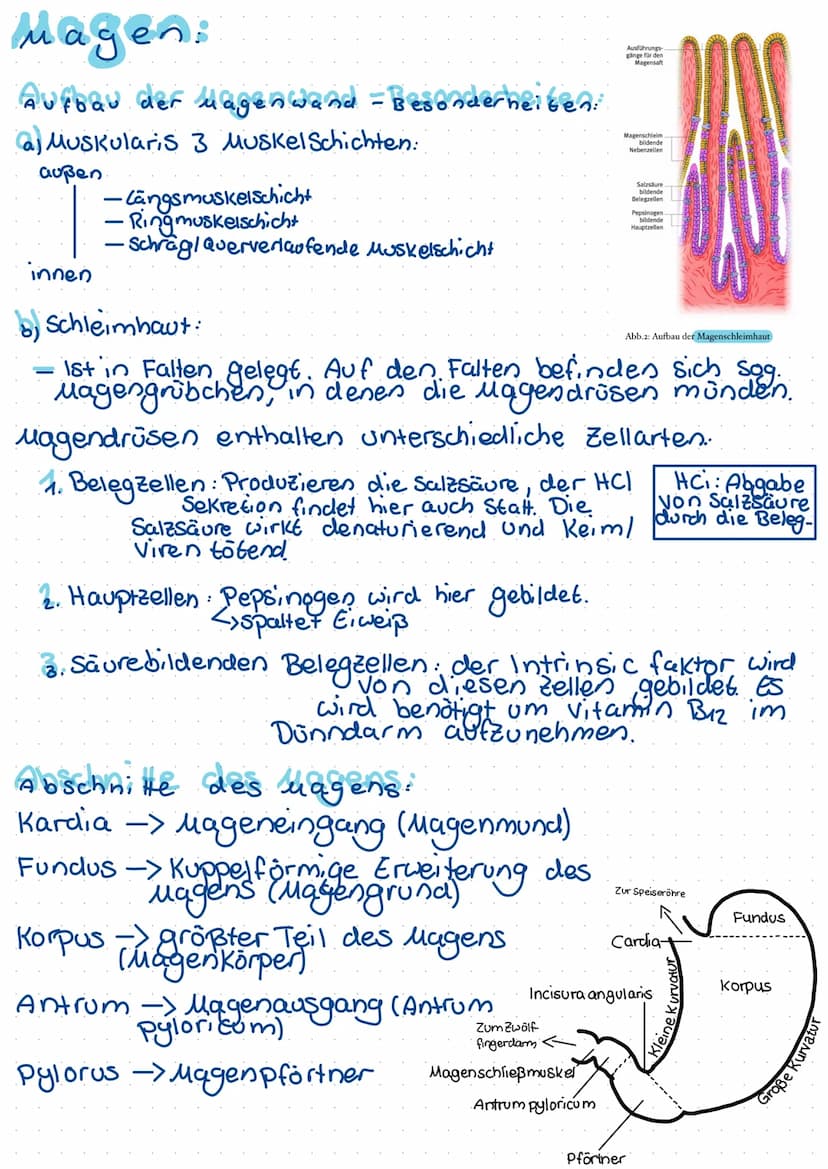 Magen:
Aufbau der Magenwand = Besonderheiten:
a) Muskularis 3 Muskelschichten:
außen
– Längsmuskelschicht
– Ringmuskelschicht
– Schräg/Querverlaufende Muskelschicht
innen
Ausführungs-
gänge für den
Magensaft
Magenschleim
bildende
Nebenzellen
Salzsäure
bildende
Belegzellen
Pepsinogen
bildende
Hauptzellen
Abb.2: Aufbau der Magenschleimhaut
b) Schleimhaut:
– Ist in Falten gelegt. Auf den Falten befinden sich sog.
Magengrübchen, in denen die Magendrüsen münden.
Magendrüsen enthalten unterschiedliche Zellarten.
1. Belegzellen: Produzieren die Salzsäure, der HCl
Sekretion findet hier auch statt. Die
Salzsäure wirkt denaturierend und Keim/
Viren tötend.
HCi: Abgabe
von Salzsäure
durch die Beleg-
2. Hauptzellen: Pepsinogen wird hier gebildet.
↳ spaltet Eiweiß
3. Säurebildenden Belegzellen: der Intrinsic faktor wird
von diesen Zellen gebildet. Es
wird benötigt um Vitamin B12 im
Dünndarm aufzunehmen.
Abschnitte des Magens:
Kardia –> Mageneingang (Magenmund)
Fundus –> Kuppelförmige Erweiterung des
Magens (Magengrund)
Korpus –> größter Teil des Magens
(Magenkörper)
Antrum –> Magenausgang (Antrum
pyloricum)
Pylorus –> Magenpförtner
Zur Speiseröhre
Fundus
Cardia
Korpus
Incisura angularis
Kleine Kurvatur
Große Kurvatur
Zum Zwölf
fingerdarm
Magenschließmuskel
Antrum pyloricum
Pförtner